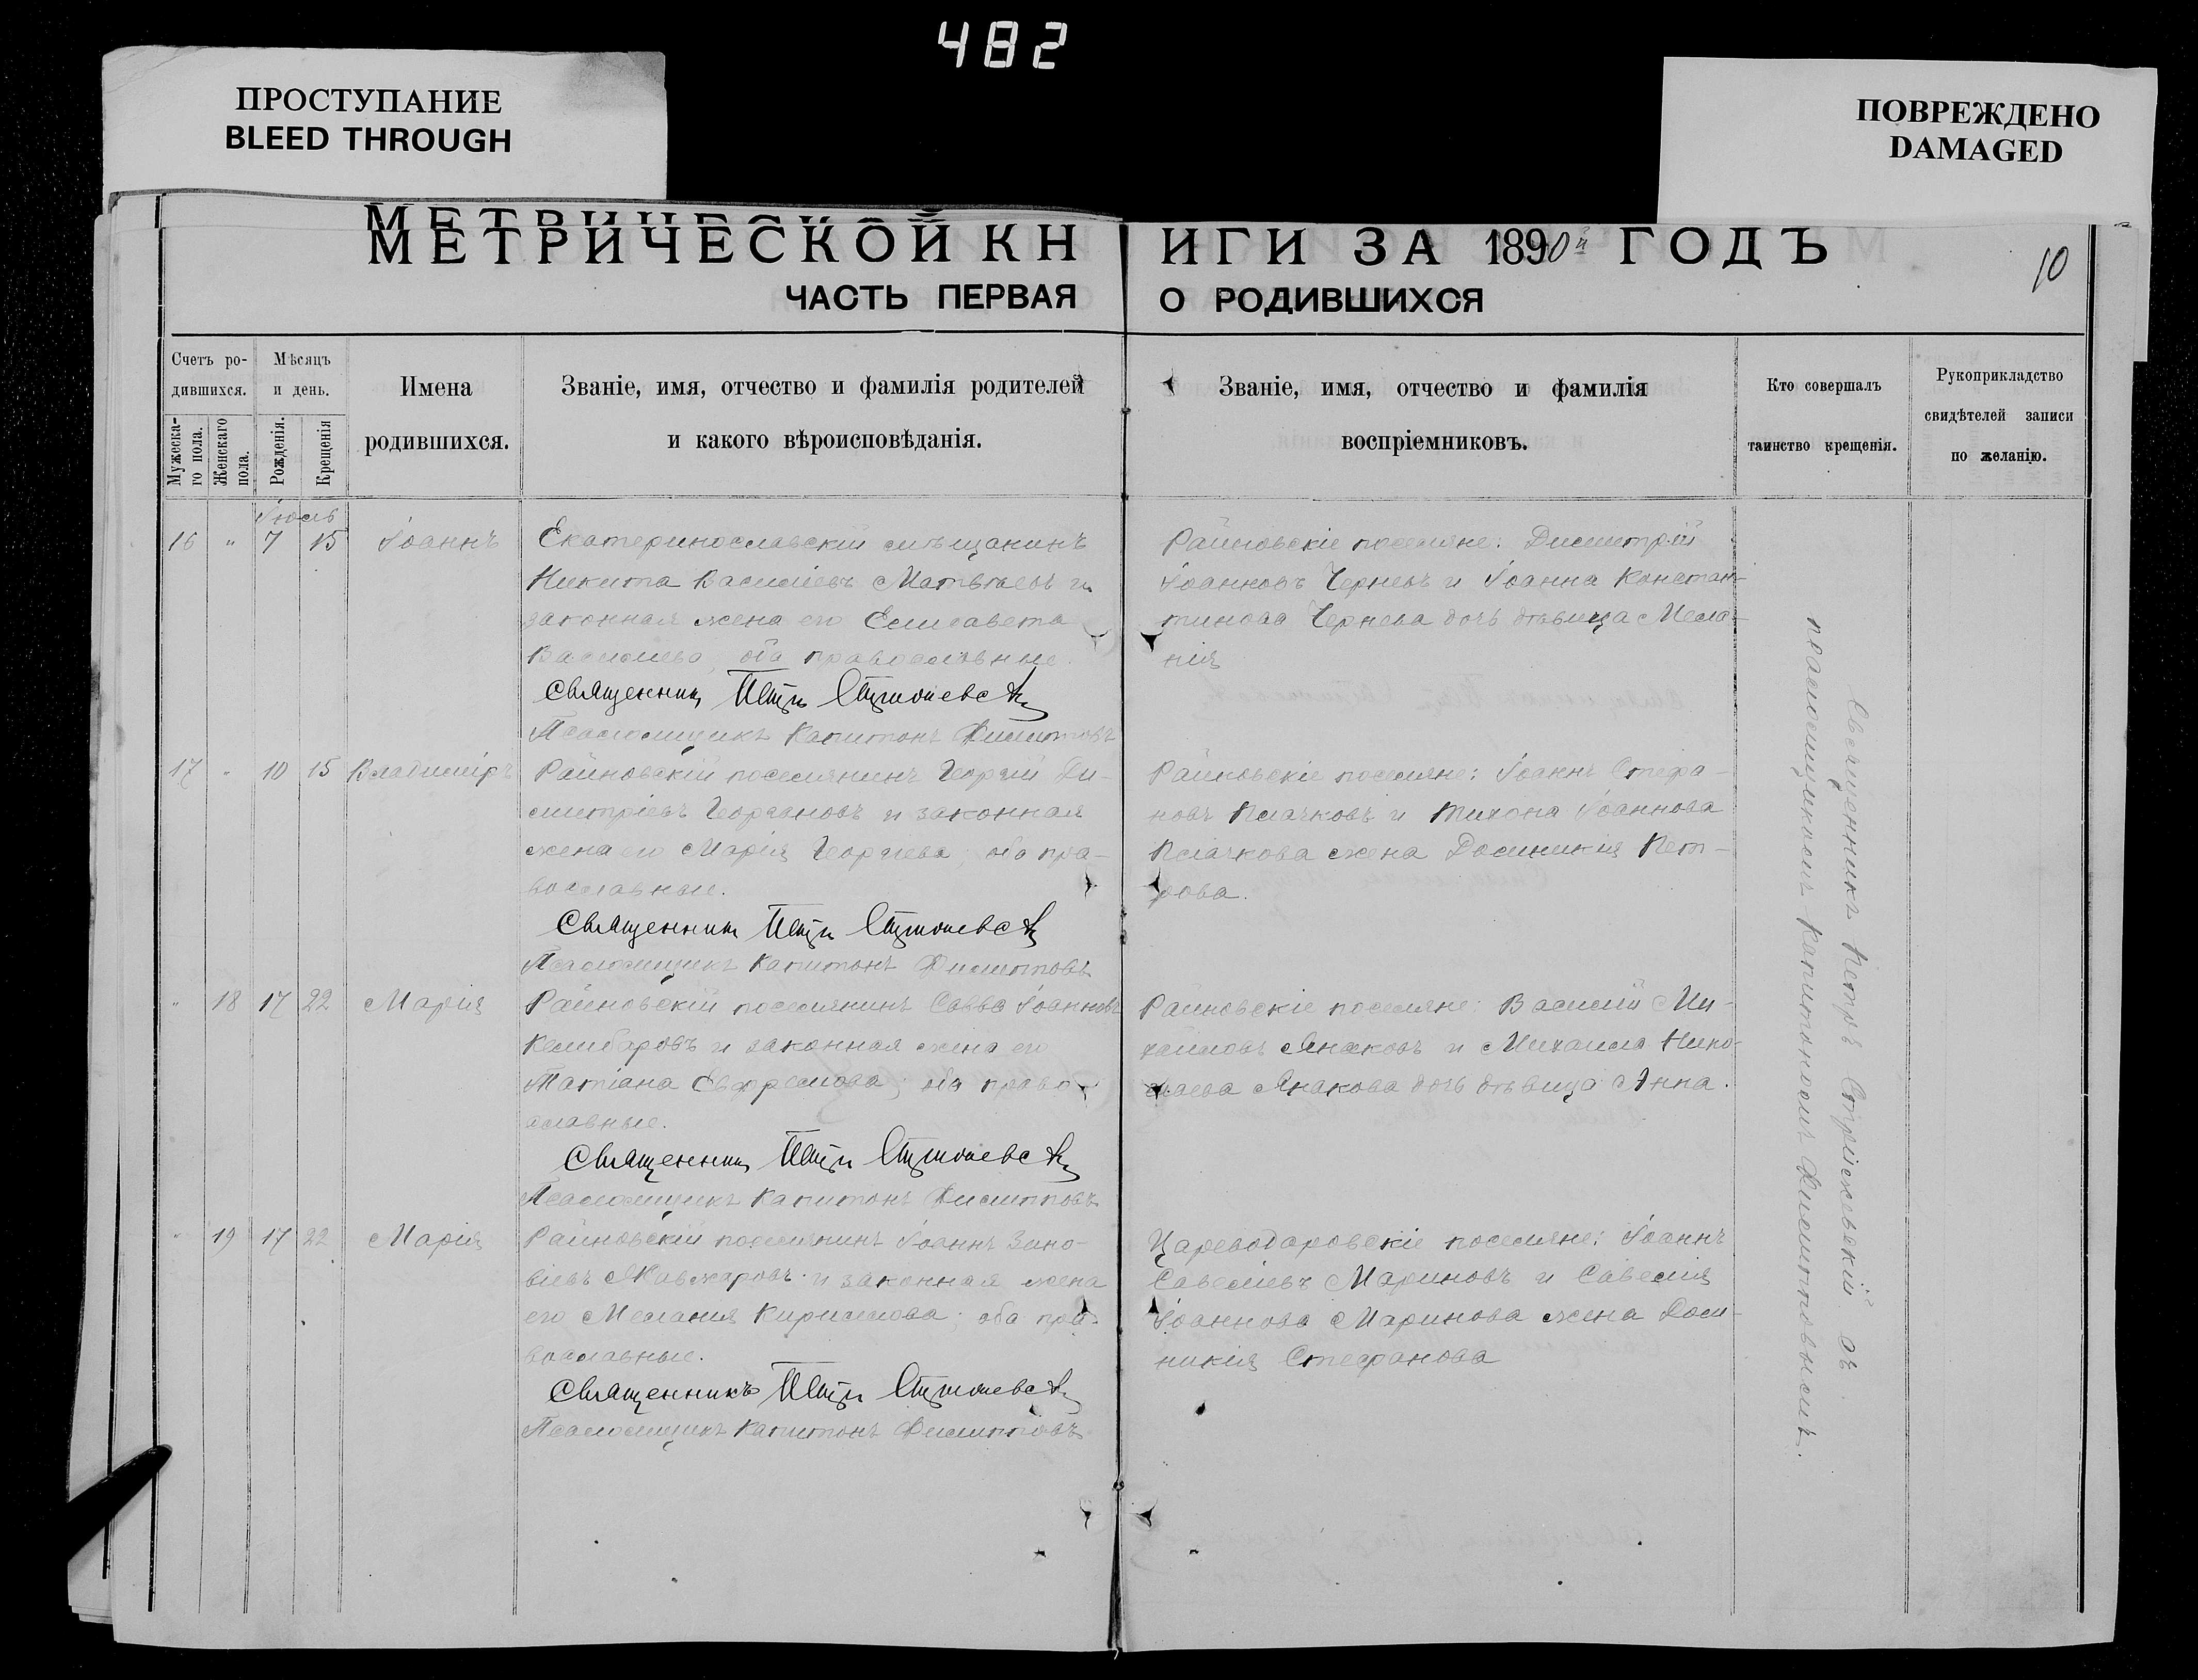 482
ПРОСТУПАНИЕ
BLEED THROUGH
ПОВРЕЖДЕНО
DAMAGED
МЕТРИЧЕСКОЙ КНИГИ ЗА 1890й ГОДЪ
10
ЧАСТЬ ПЕРВАЯ О РОДИВШИХСЯ
Счетъ ро-
дившихся.
Мужеска-
го пола.
Женскаго
пола.
Мѣсяцъ
и день.
Рожденія.
Крещенія
Имена
родившихся.
Званіе, имя, отчество и фамилія родителей
и какого вѣроисповѣданія.
Званіе, имя, отчество и фамилія
воспріемниковъ.
Кто совершалъ
таинство крещенія.
Рукоприкладство
свидѣтелей записи
по желанію.
Іюль
16 " 7 15 Іоаннъ
Екатеринославскій мѣщанинъ
Никита Василіевъ Матвѣевъ и
законная жена его Елисавета
Василіева, оба православные.
Священникъ Петръ
Псаломщикъ Капитонъ Филипповъ
Райновскіе поселяне: Димитрій
Іоанновъ Черневъ и Іоанна Констан-
тинова Чернева дочь дѣвица Мела-
нія
17 " 10 15 Владиміръ
Райновскій поселянинъ Георгій Ди-
митріевъ Чоргановъ и законная
жена его Марія Георгіева, оба пра-
вославные.
Священникъ Петръ
Псаломщикъ Капитонъ Филипповъ
Райновскіе поселяне: Іоаннъ Стефа-
новъ Плачковъ и Тихона Іоаннова
Плачкова жена Домникія Пет-
рова.
" 18 17 22 Марія
Райновскій поселянинъ Савва Іоанновъ
Келибаровъ и законная жена его
Татіана Ефремова; оба право-
славные.
Священникъ Петръ
Псаломщикъ Капитонъ Филипповъ
Райновскіе поселяне: Василій Ми-
хайловъ Янаковъ и Михаила Нико-
лаева Янакова дочь дѣвица Анна.
" 19 17 22 Марія
Райновскій поселянинъ Іоаннъ Зино-
віевъ Жавжаровъ и законная жена
его Меланія Кириллова; оба пра-
вославные.
Священникъ Петръ
Псаломщикъ Капитонъ Филипповъ
Цареводаровскіе поселяне: Іоаннъ
Савеліевъ Мариновъ и Савелія
Іоаннова Маринова жена Дом-
никія Стефанова
Священникъ Петръ съ
псаломщикомъ Капитономъ Филипповымъ.